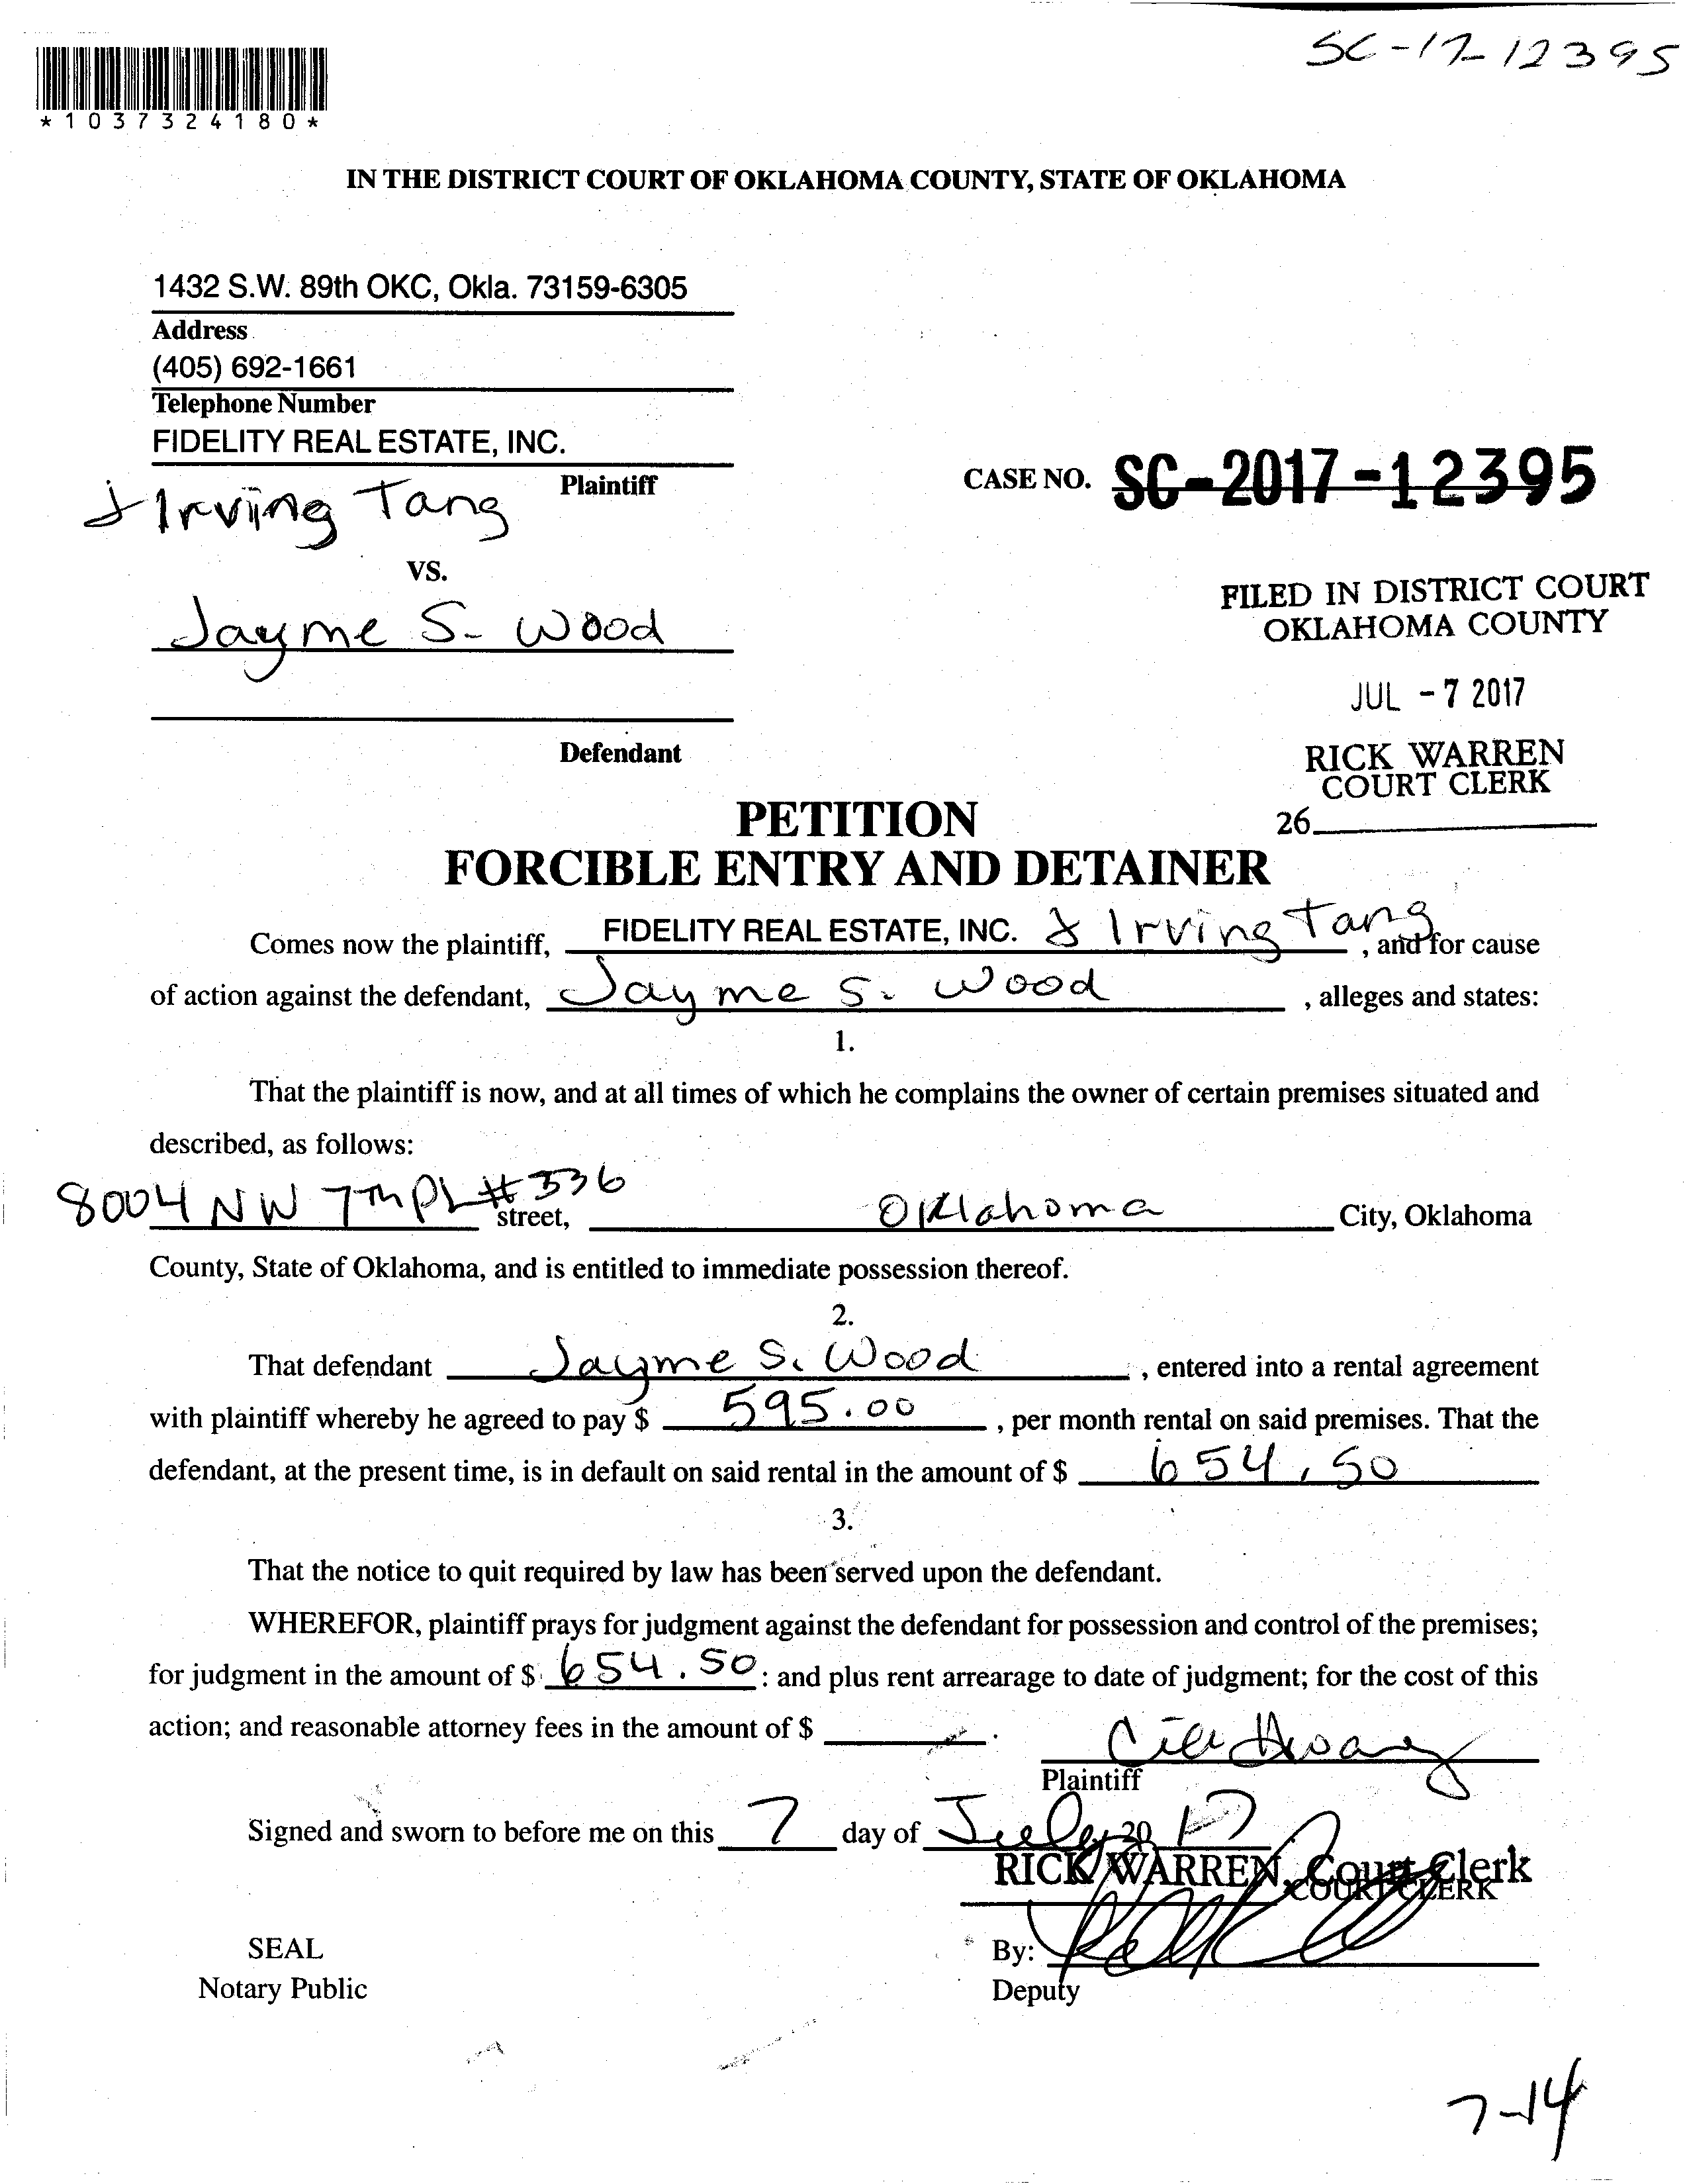 SC-17-12395
*1037324180*
IN THE DISTRICT COURT OF OKLAHOMA COUNTY, STATE OF OKLAHOMA
1432 S.W. 89th OKC, Okla. 73159-6305
Address
(405) 692-1661
Telephone Number
FIDELITY REAL ESTATE, INC.
& Irving Tang Plaintiff
CASE NO. SC-2017-12395
VS.
Jayme S. Wood
Defendant
FILED IN DISTRICT COURT
OKLAHOMA COUNTY
JUL -7 2017
RICK WARREN
COURT CLERK
26
PETITION
FORCIBLE ENTRY AND DETAINER
Comes now the plaintiff, FIDELITY REAL ESTATE, INC. & Irving Tang, and for cause
of action against the defendant, Jayme S. Wood, alleges and states:
1.
That the plaintiff is now, and at all times of which he complains the owner of certain premises situated and
described, as follows:
8004 NW 7th PL #336 street, Oklahoma City, Oklahoma
County, State of Oklahoma, and is entitled to immediate possession thereof.
2.
That defendant Jayme S. Wood, entered into a rental agreement
with plaintiff whereby he agreed to pay $ 595.00, per month rental on said premises. That the
defendant, at the present time, is in default on said rental in the amount of $ 654.50
3.
That the notice to quit required by law has been served upon the defendant.
WHEREFOR, plaintiff prays for judgment against the defendant for possession and control of the premises;
for judgment in the amount of $ 654.50: and plus rent arrearage to date of judgment; for the cost of this
action; and reasonable attorney fees in the amount of $ .
Plaintiff
Signed and sworn to before me on this 7 day of July, 20 17
RICK WARREN, Court Clerk
COURT CLERK
SEAL
Notary Public
By:
Deputy
7-14